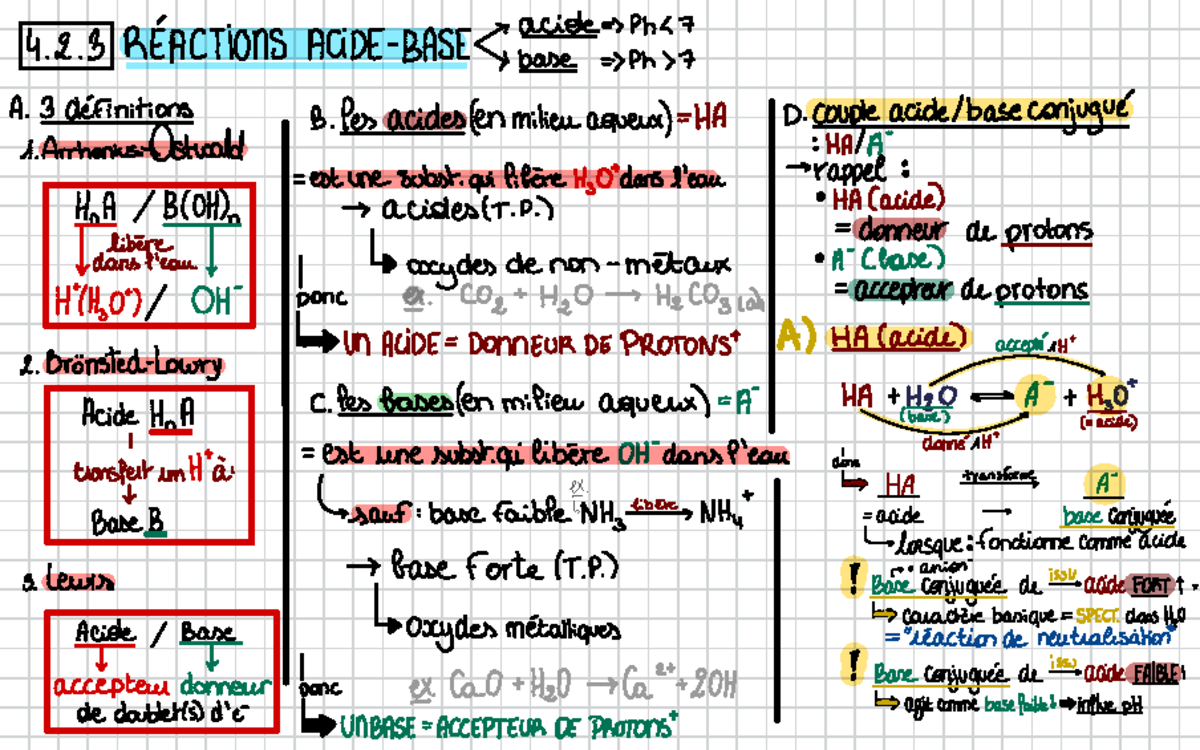 4.2.3 RÉACTIONS ACIDE-BASE
acide => Ph < 7
base => Ph > 7
A. 3 définitions
1. Arrhenius-Ostwald
HnA / B(OH)n
libère
dans l'eau
H⁺(H₃O⁺) / OH⁻
2. Brönsted-Lowry
Acide HnA
transfert un H⁺ à
Base B
3. Lewis
Acide / Base
accepteur donneur
de doublet(s) d'e⁻
B. les acides (en milieu aqueux) = HA
= est une subst. qui libère H₃O⁺ dans l'eau
→ acides (T.P.)
oxydes de non-métaux
ex. CO₂ + H₂O → H₂CO₃
Donc
UN ACIDE = DONNEUR DE PROTONS⁺
C. les bases (en milieu aqueux) = A⁻
= est une subst. qui libère OH⁻ dans l'eau
ex
sauf : base faible NH₃ libère → NH₄⁺
→ Base Forte (T.P.)
Oxydes métalliques
ex CaO + H₂O → Ca²⁺ + 2OH
Donc
UN BASE = ACCEPTEUR DE PROTONS⁺
D. couple acide/base conjugué
: HA/A⁻
→ rappel :
• HA (acide)
= donneur de protons
• A⁻ (base)
= accepteur de protons
A) HA (acide)
accepté 1H⁺
HA + H₂O ⇌ A⁻ + H₃O⁺
(base) (= acide)
donné 1H⁺
donc
HA transforme → A⁻
= acide → base conjuguée
lorsque : fonctionne comme acide
anion
! Base conjuguée de issu → acide FORT ↑
↳ caractère basique = SPECT. dans H₂O
= "réaction de neutralisation"
! Base conjuguée de issu → acide FAIBLE
↳ agit comme base faible → influe pH